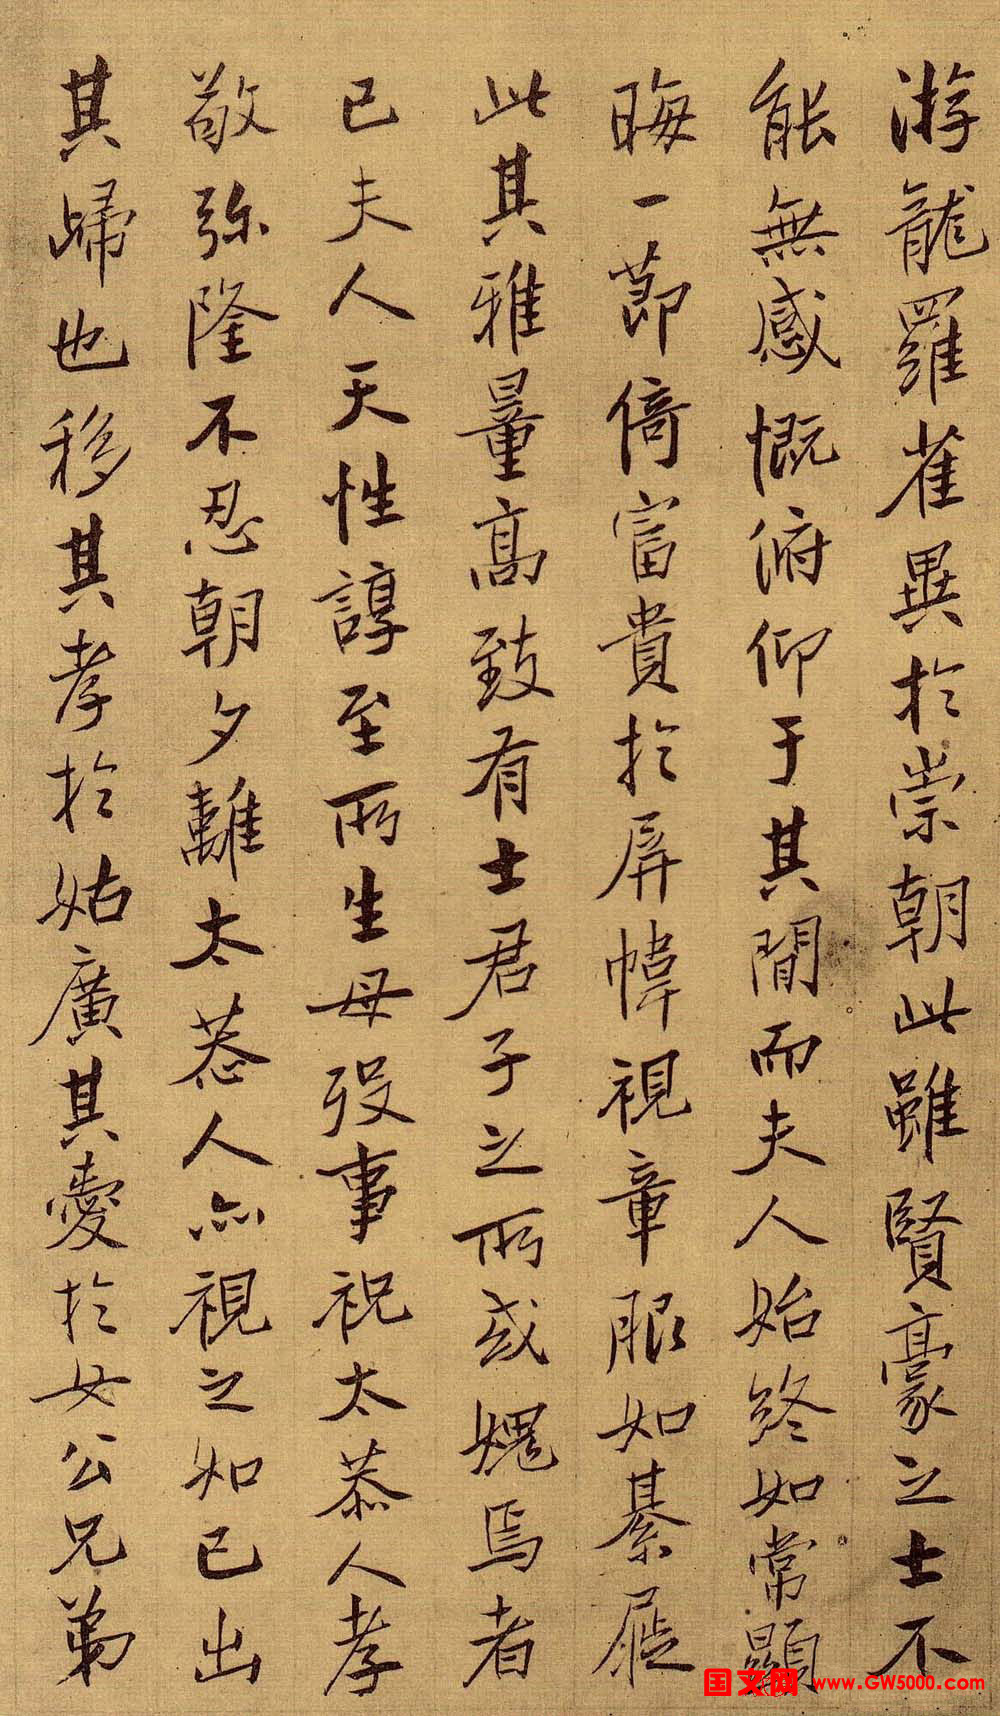 游龍羅雀異於崇朝此雖賢豪之士不
能無感慨俯仰于其間而夫人始終如常顯
晦一莭倚富貴於屏幃視章服如綦屣
此其雅量高致有士君子之所或媿焉者
已夫人天性諄至所生母歿事祝太恭人孝
敬弥隆不忍朝夕離太恭人亦視之如已出
其歸也移其孝於姑廣其愛於女公兄弟
国文网 www.GW5000.com